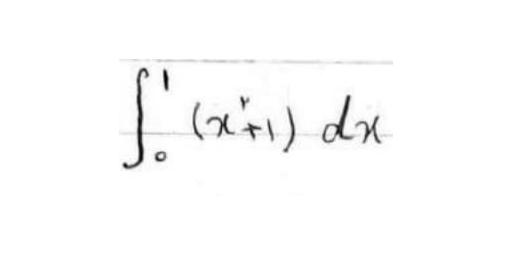 ∫₀¹ (x^r+1) dx